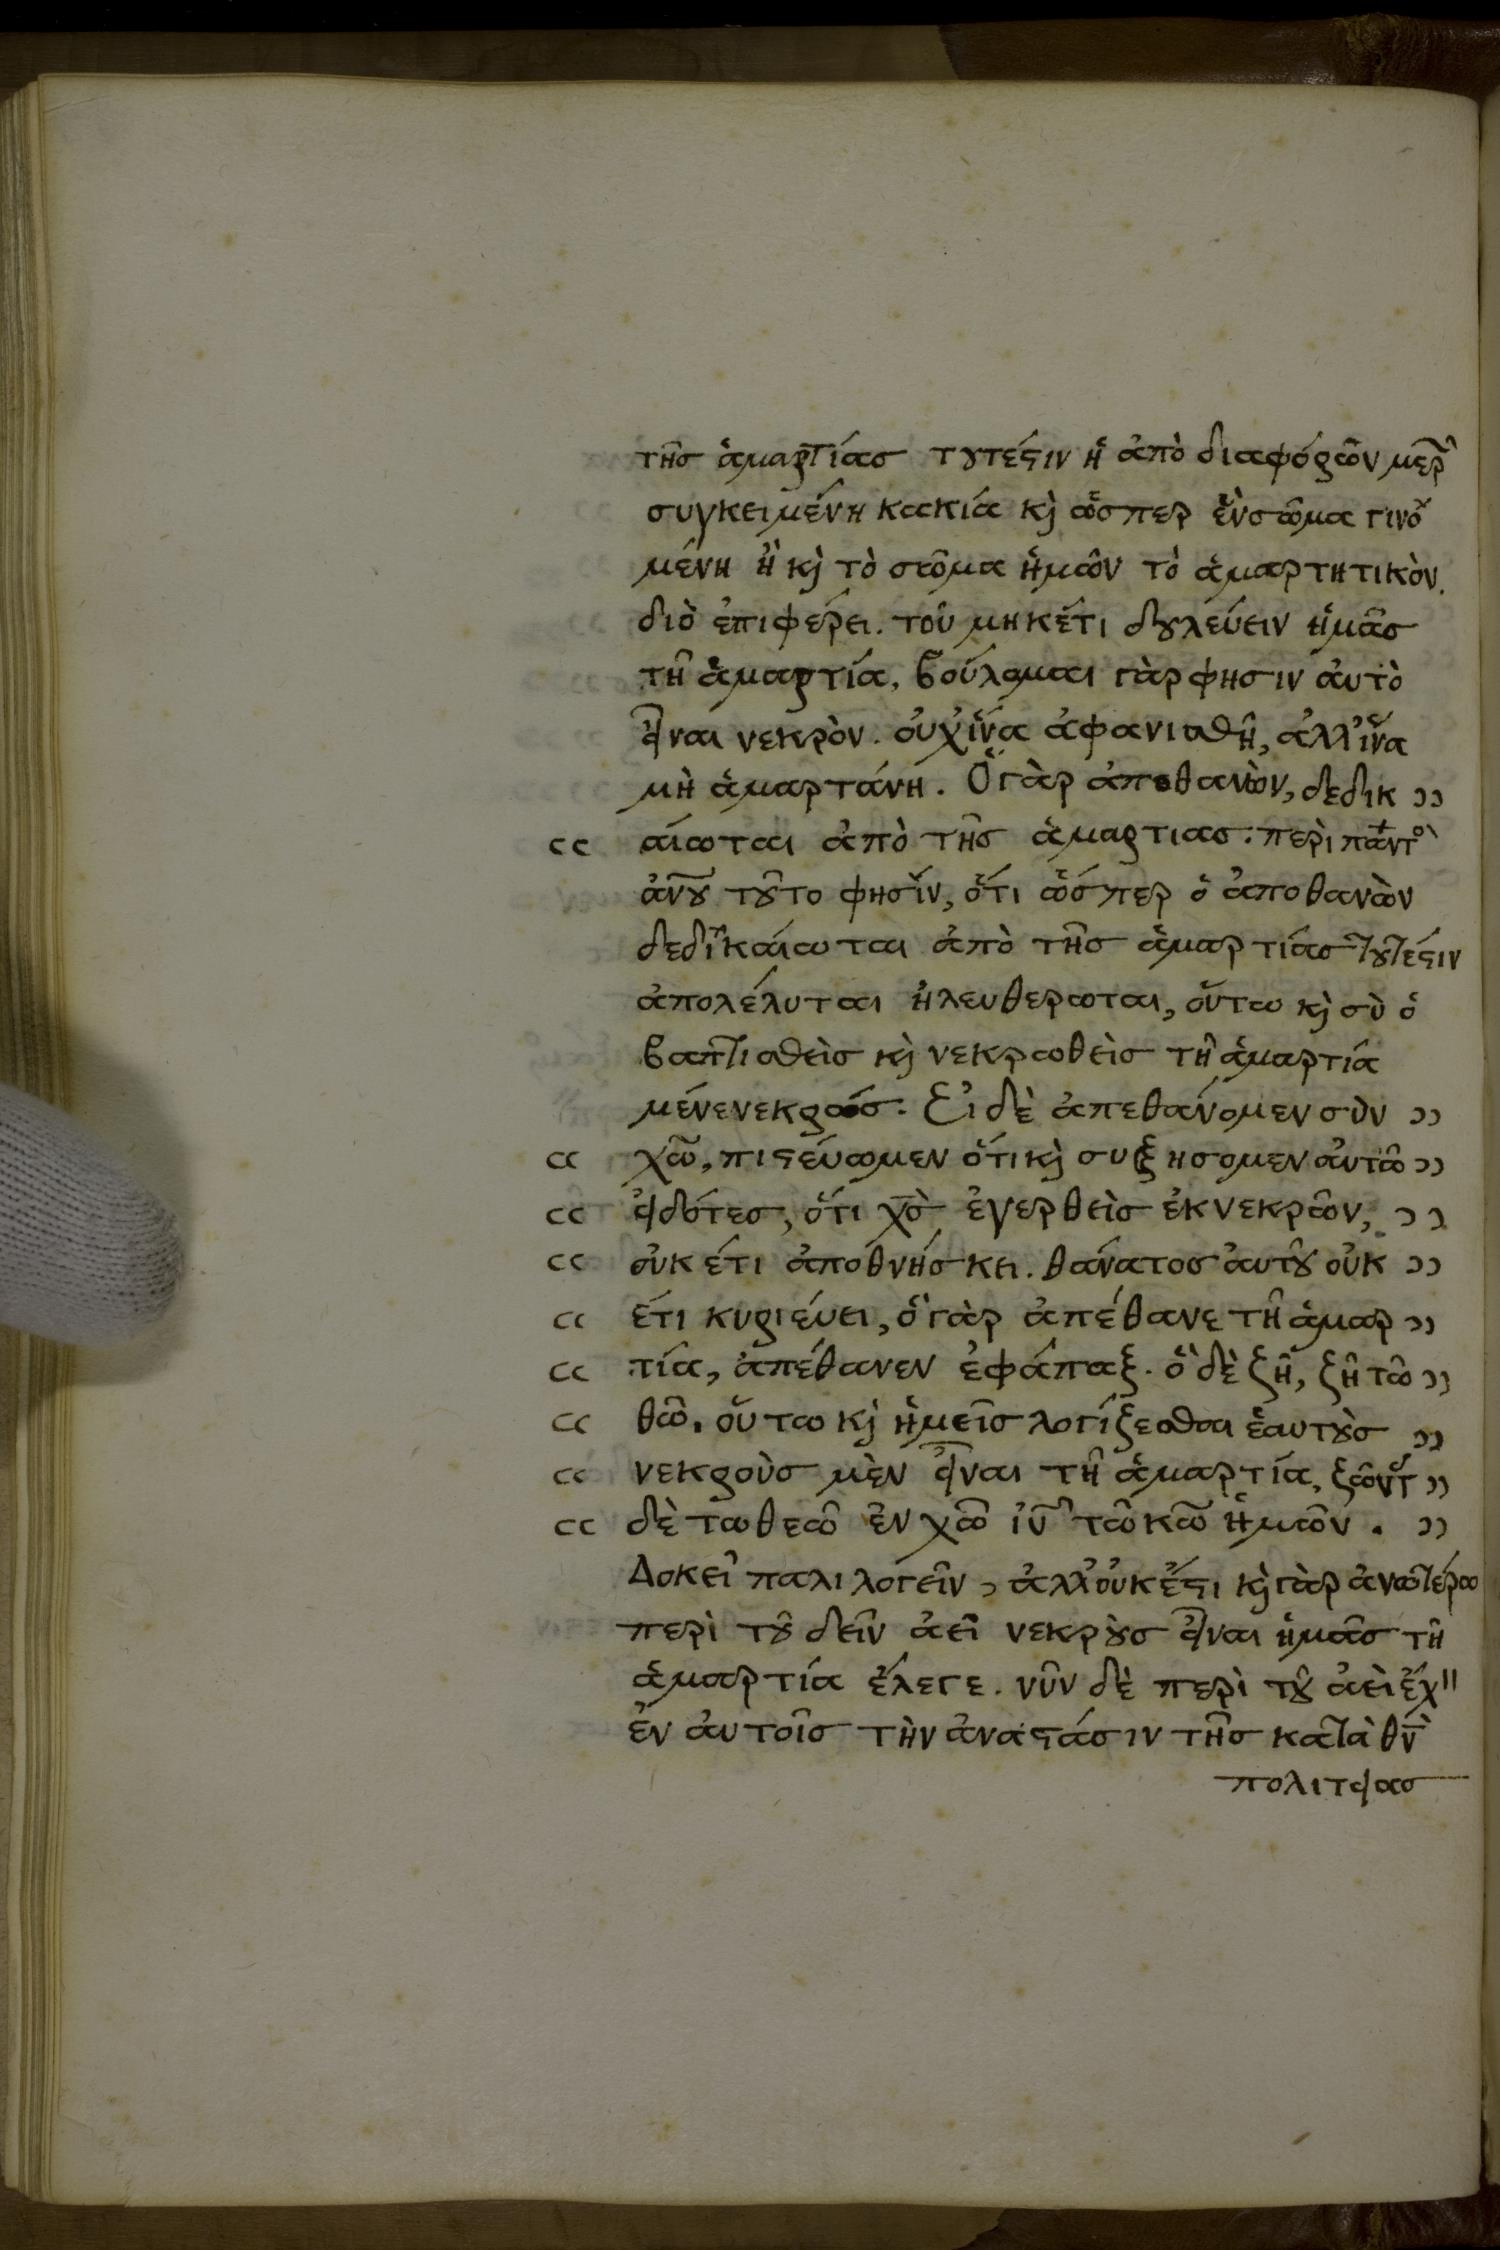 τῆς ἁμαρτίας τουτέστιν ἡ ἀπὸ διαφόρων μερῶ
συγκειμένη κακία κὶ ὥσπερ ἓν σῶμα γινο
μένη ἢ κὶ τὸ σῶμα ἡμῶν τὸ ἁμαρτητικὸν.
διὸ ἐπιφέρει. τοῦ μηκέτι δουλεύειν ἡμᾶς
τῆ ἁμαρτία, βούλομαι γὰρ φησιν αὐτὸ
εἶναι νεκρὸν. οὐχ ἵνα ἀφανισθῆ, ἀλλ' ἵνα
μὴ ἁμαρτάνη. Ὁ γὰρ ἀποθανὼν, δεδικ ››
‹‹ αίωται ἀπὸ τῆς ἁμαρτιας. περὶ παντὸ
ἀνου τοῦτο φησὶν, ὅτι ὥσπερ ὁ ἀποθανὼν
δεδικαίωται ἀπὸ τῆς ἁμαρτίας τουτέστιν
ἀπολέλυται ἠλευθερωται, οὕτω κὶ σὺ ὁ
βαπτισθεὶς κὶ νεκρωθεὶς τῆ ἁμαρτία
μένε νεκρός. Εἰ δὲ ἀπεθάνομεν σὺν ››
‹‹ χῶ, πιστεύωμεν ὅτι κὶ συζησομεν αὐτῶ ››
‹‹ εἰδότες, ὅτι χς ἐγερθεὶς ἐκ νεκρῶν, ››
‹‹ οὐκέτι ἀποθνήσκει. θάνατος αὐτοῦ οὐκ ››
‹‹ έτι κυριέυει, ὃ γὰρ ἀπέθανε τῆ ἁμαρ ››
‹‹ τία, ἀπέθανεν ἐφάπαξ. ὃ δὲ ζῆ, ζῆ τῶ ››
‹‹ θῶ. οὕτω κὶ ἡμεῖς λογίζεσθαι ἑαυτοὺς ››
‹‹ νεκροὺς μὲν εἶναι τῆ ἁμαρτία, ζῶντ ››
‹‹ δὲ τω θεῶ ἐν χῶ ἰυ τῶ κῶ ἡμῶν. ››
Δοκεῖ παλιλογεῖν, ἀλλ' οὐκ ἔστι κὶ γὰρ ἀνωτέρω
περὶ τοῦ δεῖν ἀεὶ νεκροὺς εἶναι ἡμᾶς τῆ
ἁμαρτία ἔλεγε. νῦν δὲ περὶ τοῦ ἀεὶ ἔχ"
ἐν αὐτοῖς τὴν ἀναστάσιν τῆς κατὰ θν
πολιτείας